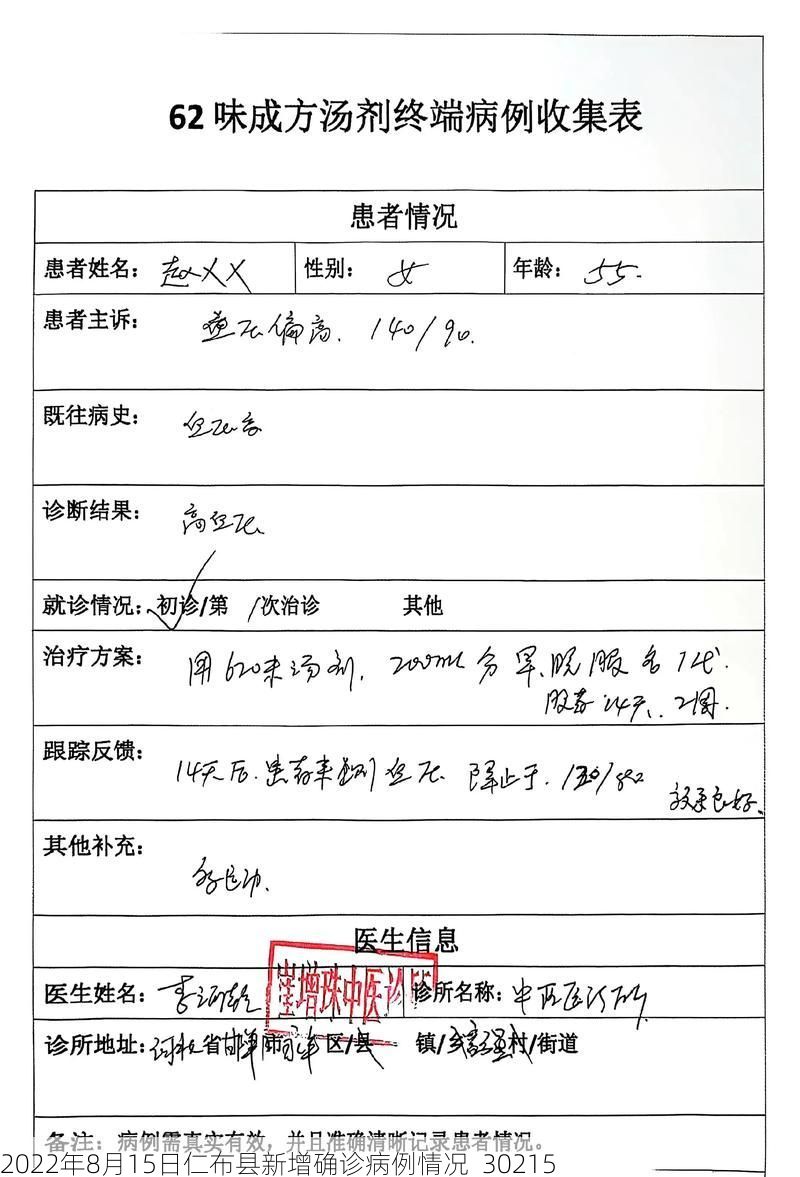 62味成方汤剂终端病例收集表
患者情况
患者姓名：赵XX 性别：女 年龄：55.
患者主诉：血压偏高. 140/90.
既往病史：血压高
诊断结果：高血压.
就诊情况：初诊/第 /次治诊 其他
治疗方案：用62味汤剂, 200ml 分早、晚服各1代.
服药14天、2周.
跟踪反馈：14天后.患者来测血压 降止于.
效果良好.
其他补充：多运动.
医生信息
医生姓名：李 诊所名称：中医诊所
崔增珠中医诊所
诊所地址：河北省邯郸市 区/县 镇/乡 村/街道
备注：病例需真实有效，并且准确清晰记录患者情况。
2022年8月15日仁布县新增确诊病例情况 30215